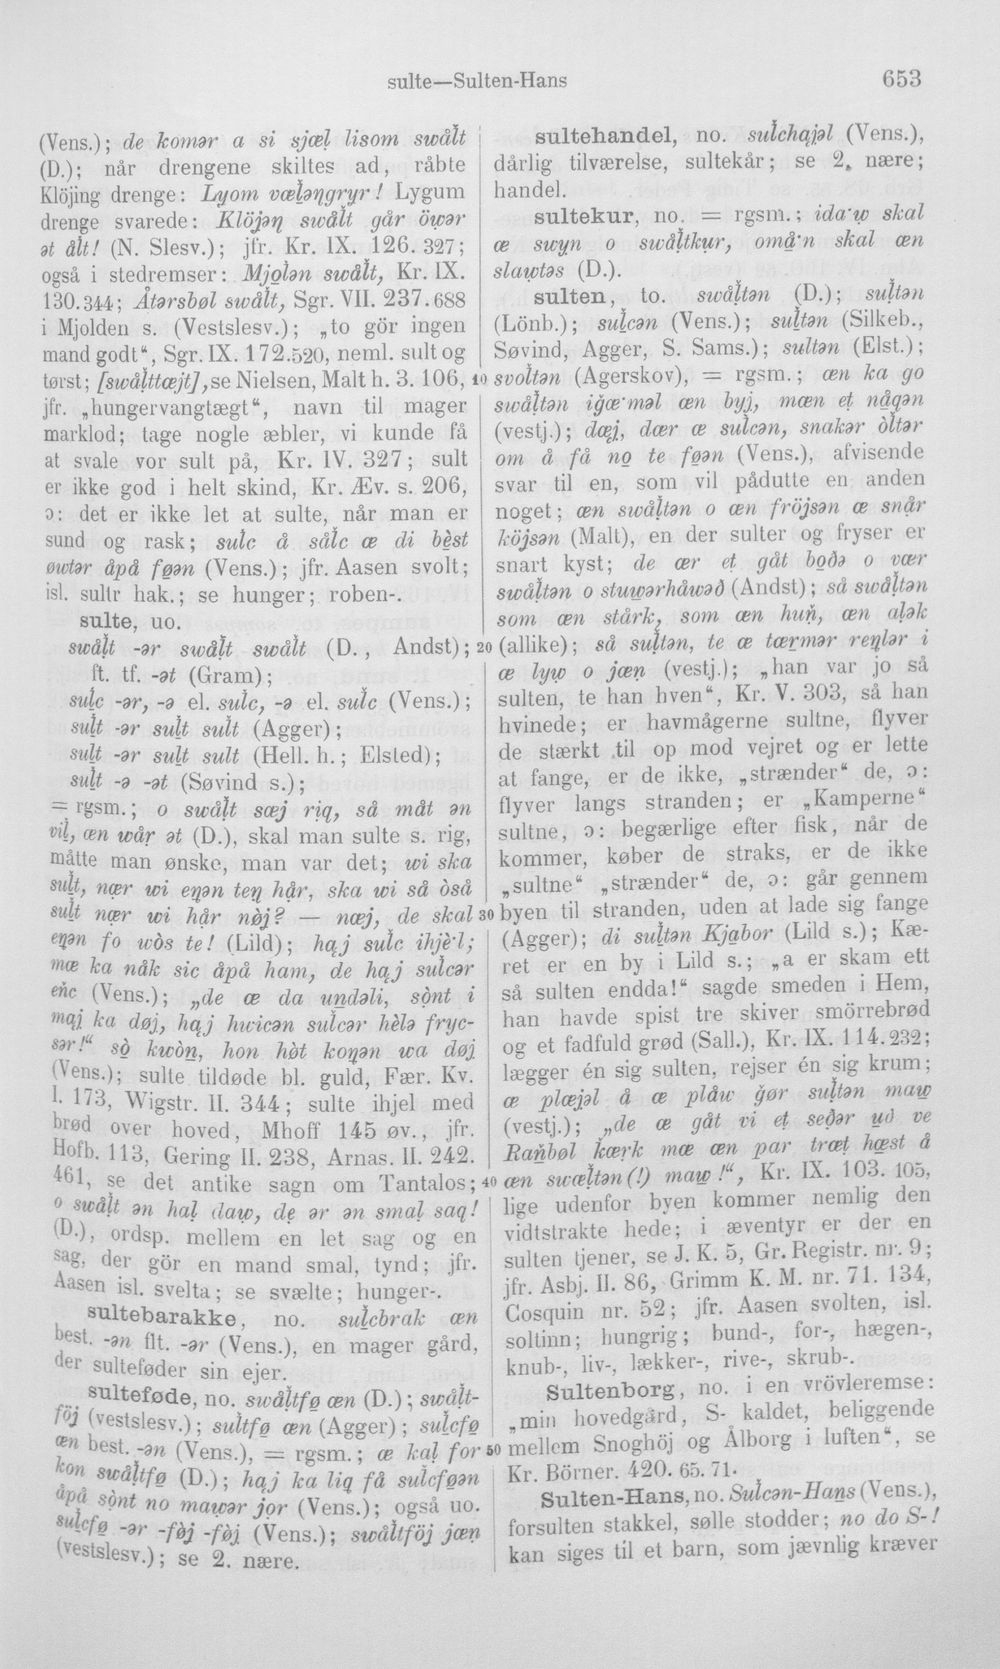 sulte—Sulten-Hans 653
(Vens.); de komər a si sjæl lisom swålt
(D.); når drengene skiltes ad, råbte
Klöjing drenge: Lyom væləŋgryr! Lygum
drenge svarede: Klöjəŋ swålt går öwər
ət ålt! (N. Slesv.); jfr. Kr. IX. 126. 327;
også i stedremser: Mjolən swålt, Kr. IX.
130.344; Åtərsbøl swålt, Sgr. VII. 237.688
i Mjolden s. (Vestslesv.); „to gör ingen
mand godt“, Sgr. IX. 172.520, neml. sult og
tørst; [swålttæjt], se Nielsen, Malt h. 3. 106,
jfr. „hungervangtægt“, navn til mager
marklod; tage nogle æbler, vi kunde få
at svale vor sult på, Kr. IV. 327; sult
er ikke god i helt skind, Kr. Æv. s. 206,
ɔ: det er ikke let at sulte, når man er
sund og rask; sulc å sålc æ di bèst
øwtər åpå føən (Vens.); jfr. Aasen svolt;
isl. sultr hak.; se hunger; roben-.
sulte, uo.
swålt -ər swålt swålt (D., Andst);
ft. tf. -ət (Gram);
sulc -ər, -ə el. sulc, -ə el. sulc (Vens.);
sult -ər sult sult (Agger);
sult -ər sult sult (Hell. h.; Elsted);
sult -ə -ət (Søvind s.);
= rgsm.; o swålt sæj riq, så måt ən
vil, æn wår ət (D.), skal man sulte s. rig,
måtte man ønske, man var det; wi ska
sult, nær wi eŋən teŋ hår, ska wi så òså
sult nær wi hår nøj? — næj, de skal
eŋən fo wòs te! (Lild); haj sulc ihjè·l;
mæ ka nåk sic åpå ham, de haj sulcər
eńc (Vens.); „de æ da undəli, sònt i
maj ka døj, haj hwicən sulcər hèlə fryc-
sər!“ sò kwòn, hon hòt koŋən wa døj
(Vens.); sulte tildøde bl. guld, Fær. Kv.
I. 173, Wigstr. II. 344; sulte ihjel med
brød over hoved, Mhoff 145 øv., jfr.
Hofb. 113, Gering II. 238, Arnas. II. 242.
461, se det antike sagn om Tantalos;
o swålt ən hal daw, de ər ən smal saq!
(D.), ordsp. mellem en let sag og en
sag, der gör en mand smal, tynd; jfr.
Aasen isl. svelta; se svælte; hunger-.
sultebarakke, no. sulcbrak æn
best. -ən flt. -ər (Vens.), en mager gård,
der sulteføder sin ejer.
sulteføde, no. swåltfø æn (D.); swålt-
föj (vestslesv.); sultfø æn (Agger); sulcfø
æn best. -ən (Vens.), = rgsm.; æ kal for
kon swåltfø (D.); haj ka liq få sulcføən
åpå sònt no mawər jor (Vens.); også uo.
sulcfø -ər -føj -føj (Vens.); swåltföj jæn
(vestslesv.); se 2. nære.
sultehandel, no. sulchajəl (Vens.),
dårlig tilværelse, sultekår; se 2. nære;
handel.
sultekur, no. = rgsm.; ida·w skal
æ swyn o swåltkur, omå·n skal æn
slawtəs (D.).
sulten, to. swåltən (D.); sultən
(Lönb.); sulcən (Vens.); sultən (Silkeb.,
Søvind, Agger, S. Sams.); sultən (Elst.);
10 svoltən (Agerskov), = rgsm.; æn ka go
swåltən iğæ·məl æn byj, mæn et nåqən
(vestj.); dæj, dær æ sulcən, snakər òltər
om å få no te føən (Vens.), afvisende
svar til en, som vil pådutte en anden
noget; æn swåltən o æn fröjsən æ snår
köjsən (Malt), en der sulter og fryser er
snart kyst; de ær et gåt boðə o vær
swåltən o stuwərhåwəð (Andst); så swåltən
som æn stårk, som æn huń, æn alək
20 (allike); så sultən, te æ tærmər reŋlər i
æ lyw o jæn (vestj.); „han var jo så
sulten, te han hven“, Kr. V. 303, så han
hvinede; er havmågerne sultne, flyver
de stærkt til op mod vejret og er lette
at fange, er de ikke, „strænder“ de, ɔ:
flyver langs stranden; er „Kamperne“
sultne, ɔ: begærlige efter fisk, når de
kommer, køber de straks, er de ikke
„sultne“ „strænder“ de, ɔ: går gennem
30 byen til stranden, uden at lade sig fange
(Agger); di sultən Kjabor (Lild s.); Kæ-
ret er en by i Lild s.; „a er skam ett
så sulten endda!“ sagde smeden i Hem,
han havde spist tre skiver smörrebrød
og et fadfuld grød (Sall.), Kr. IX. 114.232;
lægger én sig sulten, rejser én sig krum;
æ plæjəl å æ plåw ğør sultən maw
(vestj.); „de æ gåt vi et seðər uð ve
Rańbøl kærk mæ æn par træt hæst å
40 æn swæltən(!) maw!“, Kr. IX. 103. 105,
lige udenfor byen kommer nemlig den
vidtstrakte hede; i æventyr er der en
sulten tjener, se J. K. 5, Gr. Registr. nr. 9;
jfr. Asbj. II. 86, Grimm K. M. nr. 71. 134,
Cosquin nr. 52; jfr. Aasen svolten, isl.
soltinn; hungrig; bund-, for-, hægen-,
knub-, liv-, lækker-, rive-, skrub-.
Sultenborg, no. i en vrövleremse:
„min hovedgård, S- kaldet, beliggende
50 mellem Snoghöj og Ålborg i luften“, se
Kr. Börner. 420. 65. 71.
Sulten-Hans, no. Sulcən-Hans (Vens.),
forsulten stakkel, sølle stodder; no do S-!
kan siges til et barn, som jævnlig kræver